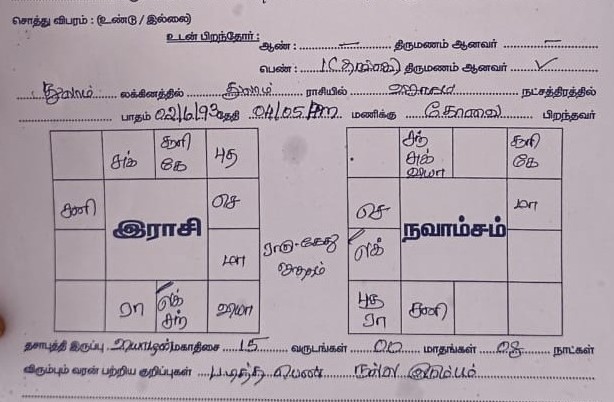 சொத்து விபரம் : (உண்டு / இல்லை)
உடன் பிறந்தோர் : ஆண் : — திருமணம் ஆனவர் —
பெண் : 1 திருமணம் ஆனவர் ✓
துலாம் லக்கினத்தில் துலாம் ராசியில் நட்சத்திரத்தில்
பாதம் 02/6/93 தேதி 04/05 PM மணிக்கு கோவை பிறந்தவர்
சுக் சூரி கே புத
சனி செ
இராசி
மா
ரா சந் வியா
ராகு-கேது
சந் சுக் வியா சூரி கே
செ மா
நவாம்சம்
புத ரா சனி
தசாபுத்தி இருப்பு வியாழன் மகாதிசை 15 வருடங்கள் 00 மாதங்கள் 08 நாட்கள்
விரும்பும் வரன் பற்றிய குறிப்புகள் படித்த பெண் நல்ல குடும்பம்